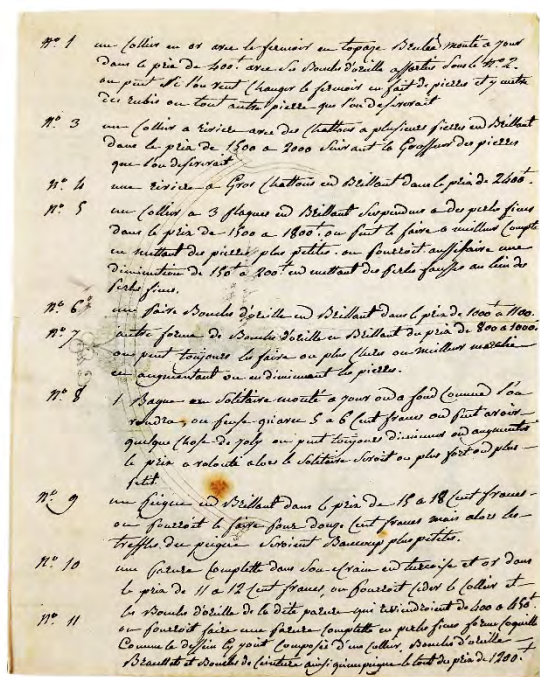 N° 1 un Collier en or avec le fermoir en topaze Brulée monté a jour
dans le prix de 400ᵗ avec ses Boucles d'oreille assorties Sous le N° 2.
on peut Si l'on veut Changer le fermoir en fait de pierres et y mettre
des rubis ou tout autre pierre que l'on desireroit
N° 3 un Collier a riviere avec des Chattons a plusieurs pierres en Brillant
dans le prix de 1500 a 2000 Suivant la Grosseur des pierres
que l'on desireroit.
N° 4 une riviere a Gros Chattons en Brillant dans le prix de 2400ᵗ.
N° 5 un Collier a 3 plaques en Brillant Suspendus a des perles fines
dans le prix de 1500 a 1800ᵗ. on peut le faire a meilleur Compte
en mettant des pierres plus petites. on pourroit aussi faire une
diminution de 150ᵗ a 200ᵗ en mettant des perles fausses au lieu des
perles fines.
N° 6 une paire Boucles d'oreille en Brillant dans le prix de 1000ᵗ a 1100.
N° 7 autre forme de Boucles d'oreille en Brillant du prix de 800 a 1000.
on peut toujours les faire ou plus Cheres ou meilleur marché
en augmentant ou en diminuant les pierres.
N° 8 1 Bague en Solitaire monté a jour ou a fond Comme l'on
voudra, on pense qu'avec 5 a 6 Cent francs on peut avoir
quelque Chose de joly on peut toujours diminuer ou augmenter
le prix a volonté alors le Solitaire Seroit ou plus fort ou plus
petit.
N° 9 un peigne en Brillant dans le prix de 15 a 18 Cent francs
on pourroit le faire pour douze Cent francs mais alors les
treffles du peigne Seroient Beaucoup plus petites.
N° 10 une parure Complette dans Son Ecrain en turcoise et or dans
le prix de 11 a 12 Cent francs, on pourroit ceder le Collier et
les Boucles d'oreille de la dite parure qui reviendroient de 400 a 450ᵗ
N° 11 on pourroit faire une parure Complette en perles fines forme Coquille
Comme le dessein Cy joint Composée d'un Collier, Boucles d'oreille
Bracellet et Boucles de Ceinture ainsi qu'un peigne le tout du prix de 1200.ᵗ